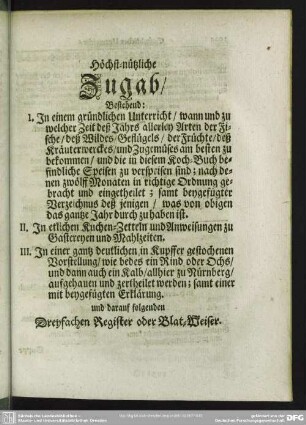 Höchst-nützliche
Zugab/
Bestehend:
I. In einem gründlichen Unterricht/ wann und zu
welcher Zeit deß Jahrs allerley Arten der Fi-
sche/ deß Wildes/ Geflügels/ der Früchte/ deß
Kräuterwerckes/ und Zugemüses am besten zu
bekommen/ und die in diesem Koch-Buch be-
findliche Speisen zu verspeisen sind; nach de-
nen zwölff Monaten in richtige Ordnung ge-
bracht und eingetheilet; samt beygefügter
Verzeichnus deß jenigen/ was von obigen
das gantze Jahr durch zu haben ist.
II. In etlichen Kuchen-Zetteln und Anweisungen zu
Gastereyen und Mahlzeiten.
III. In einer gantz deutlichen in Kupffer gestochenen
Vorstellung/ wie bedes ein Rind oder Ochs/
und dann auch ein Kalb/ allhier zu Nürnberg/
aufgehauen und zertheilet werden; samt einer
mit beygefügten Erklärung.
und darauf folgenden
Dreyfachen Register oder Blat-Weiser.